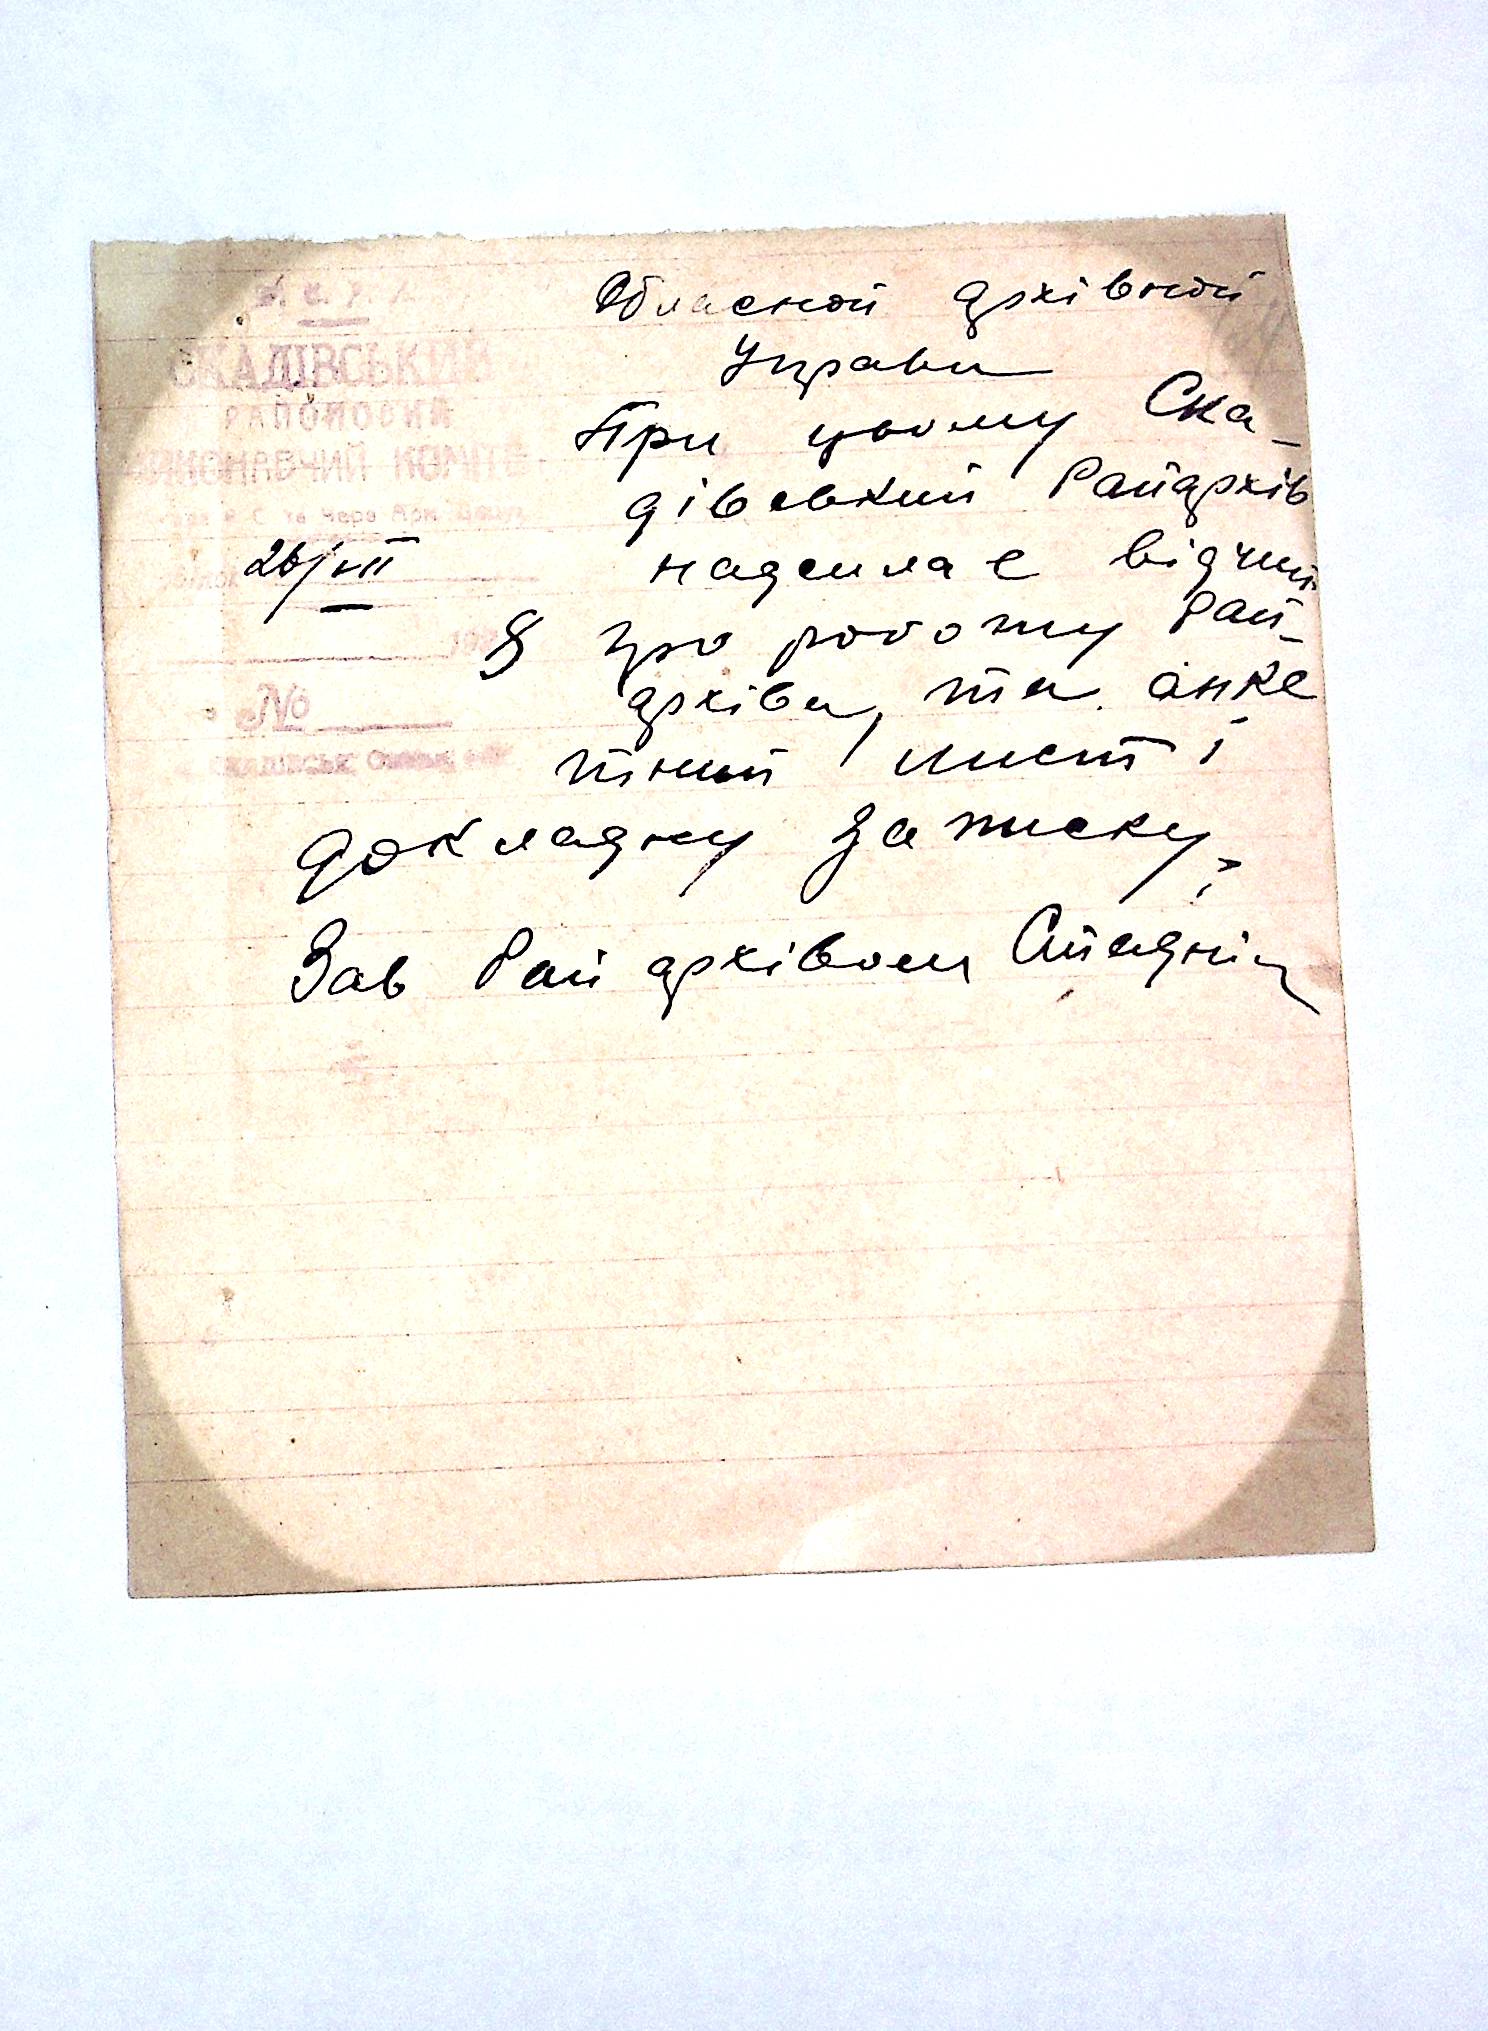 У. С. Р. Р.
СКАДІВСЬКИЙ
РАЙОНОВИЙ
ВИКОНАВЧИЙ КОМІТЕТ
Рад Р. С. та Черв Арм Деп
26/VII
193
№
СКАДІВСЬК, Одеськ.
Обласной архівной
Управи
При цьому Ска-
дівський Райархів
надсилає відчит
про роботу Рай-
архіва, та анке
тний лист і
докладну записку,
Зав Рай архівом